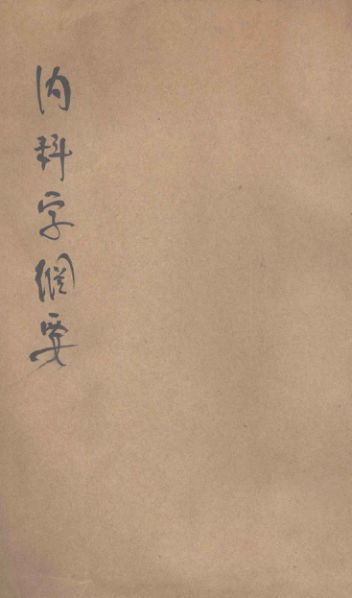 内科学纲要